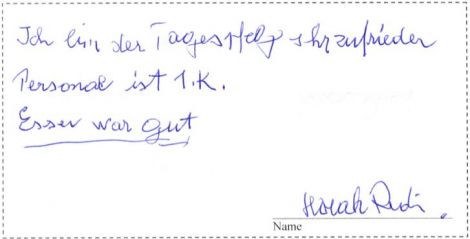 Ich bin der Tagespflg sehr zufrieden
Personal ist 1.K.
Essen war gut
Horak Rudi
Name